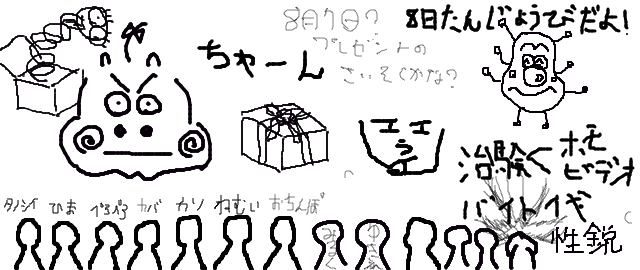 8月7日?
プレゼントの
さいそくかな?
8日たんじょうびだよ!
ちゃーん
エエ
う
治験く
ホモ
ビデオ
バイトイギ
性鋭
タノシイ ひま ぺろぺろ カバ カソ ねむい おちんぽ